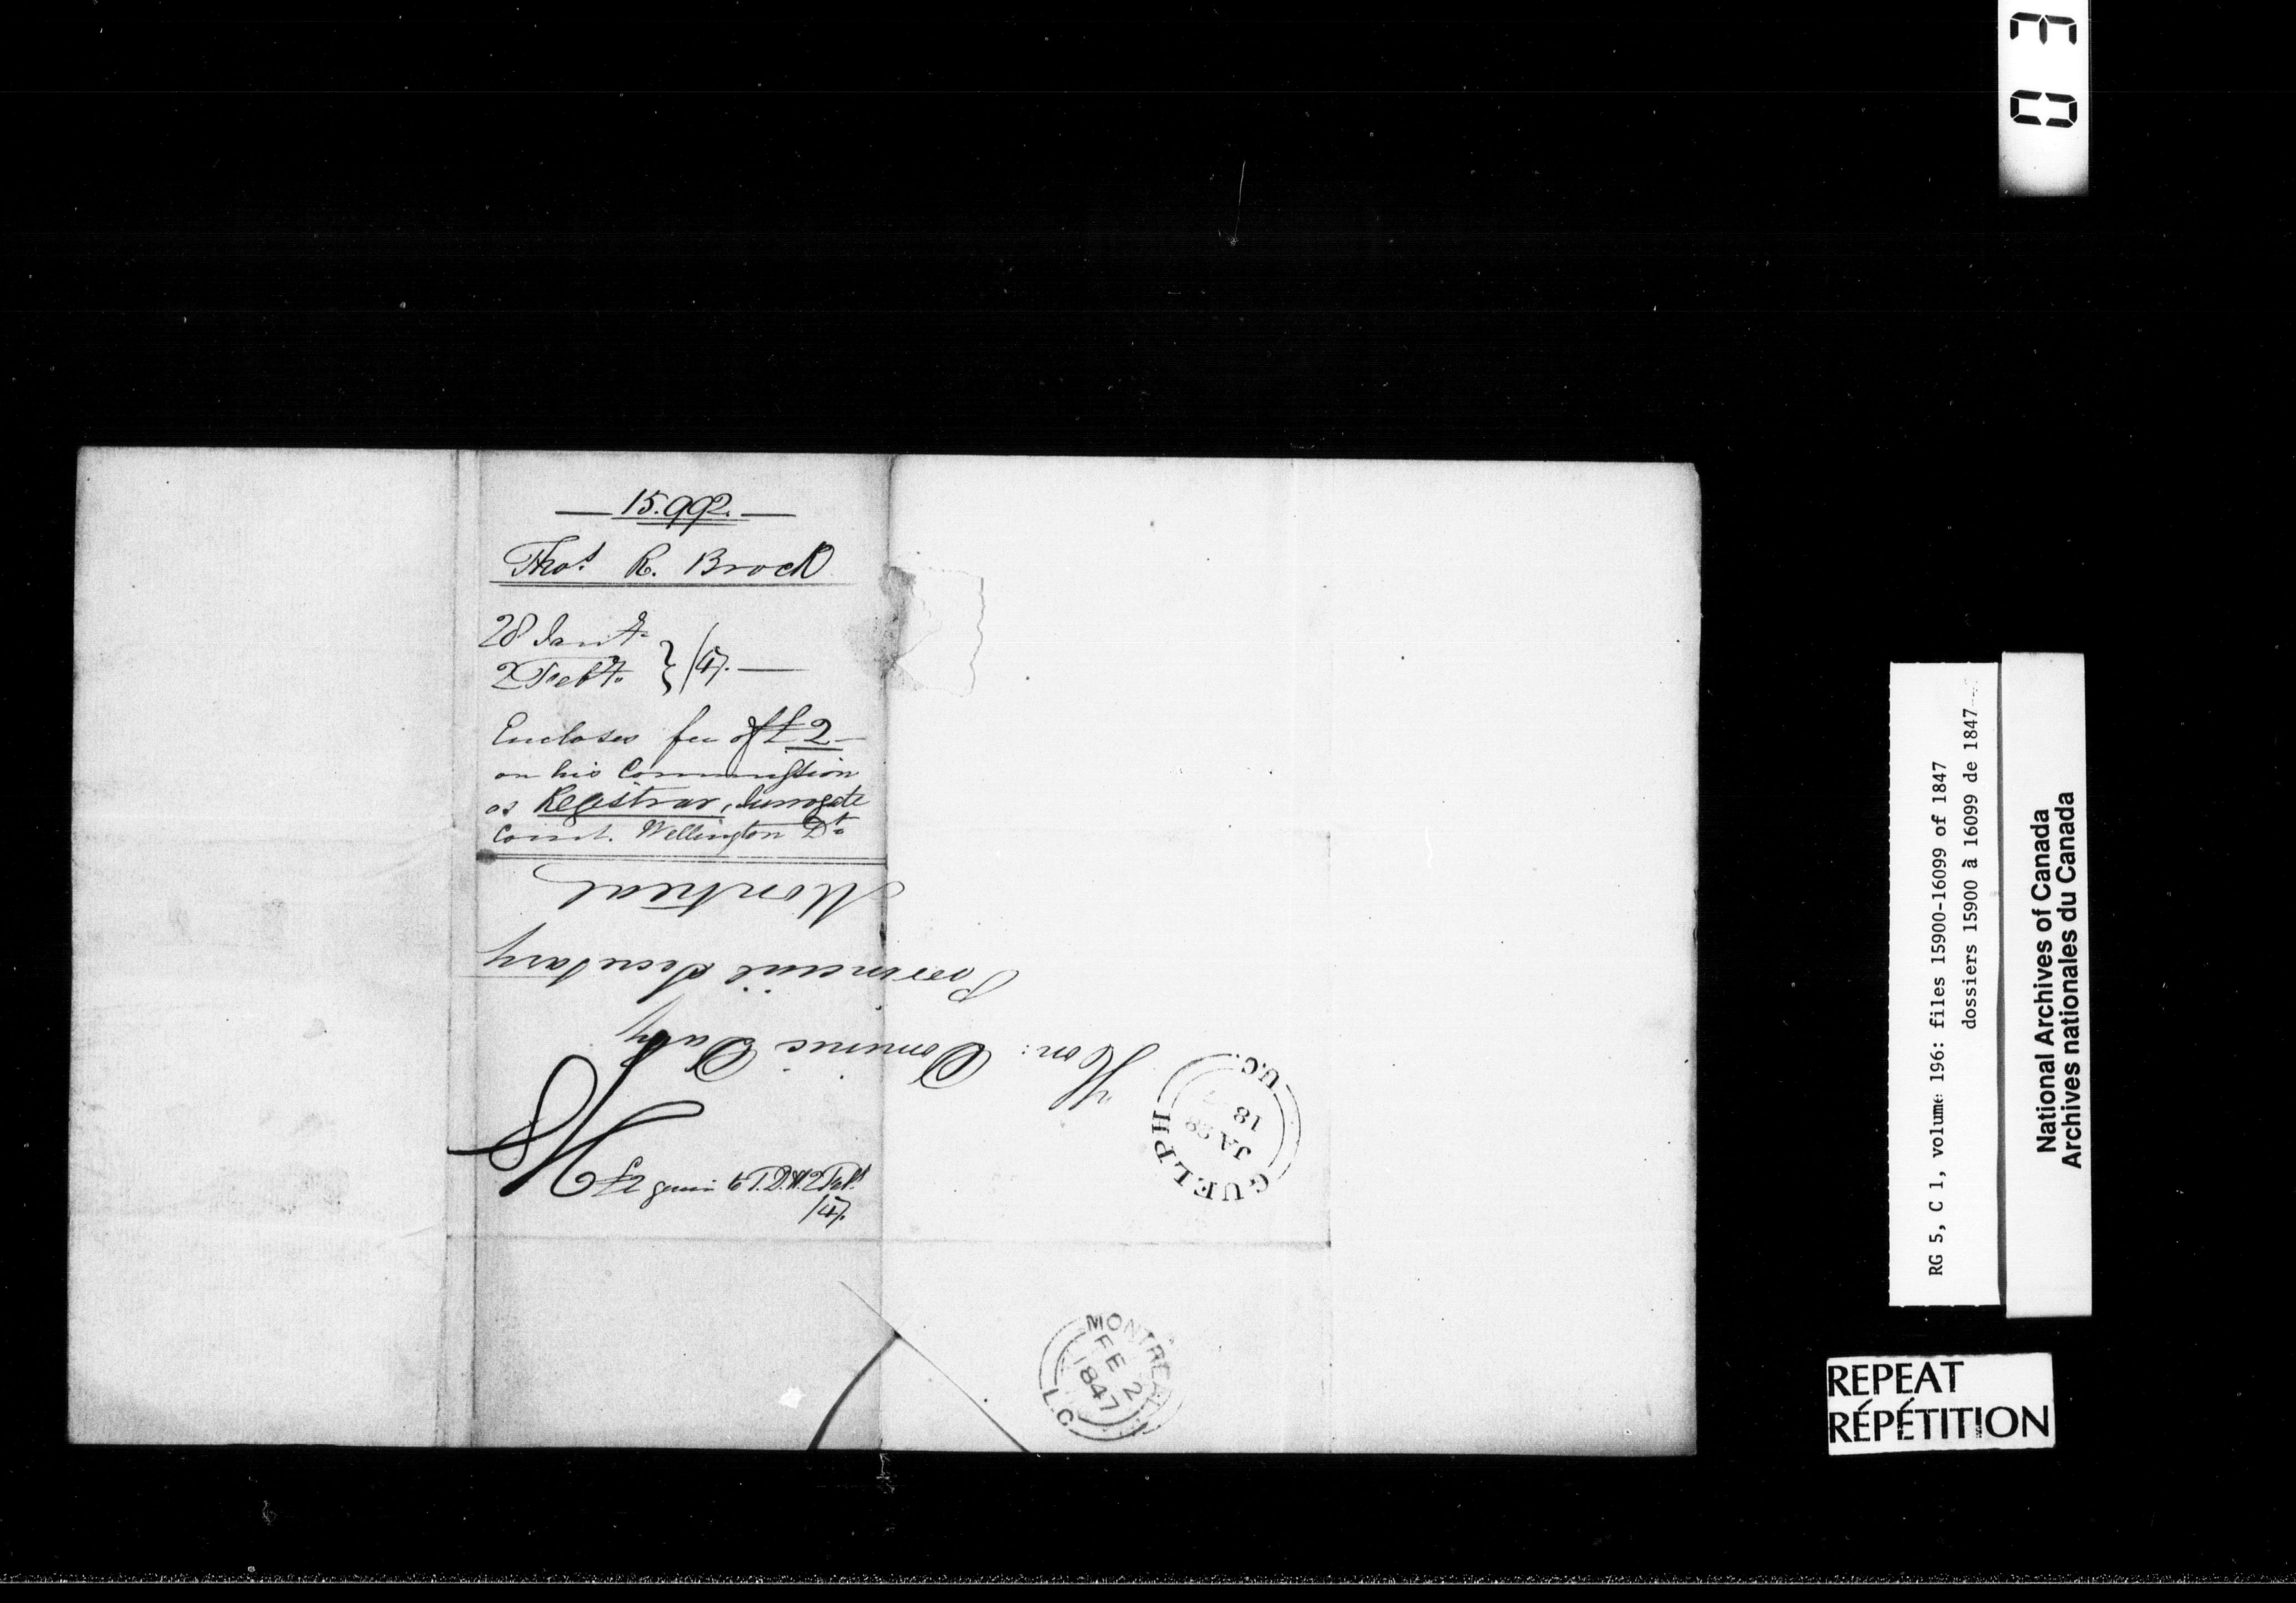 15.992.
Thos. R. Brock
28 Jany.
2 Feby. } /47.
Encloses fee of £2
on his Commission
as Registrar, Surrogate
Court. Wellington Dt.
Hon: Dominic Daly
Provincial Secretary
Montreal
£2 given to T.D.H. 2 Feb.
/47.
GUELPH
JA 28
18
U.C.
MONTREAL
FE 2
1847
L.C.
03
RG 5, C 1, volume 196: files 15900-16099 of 1847
dossiers 15900 à 16099 de 1847
National Archives of Canada
Archives nationales du Canada
REPEAT
RÉPÉTITION